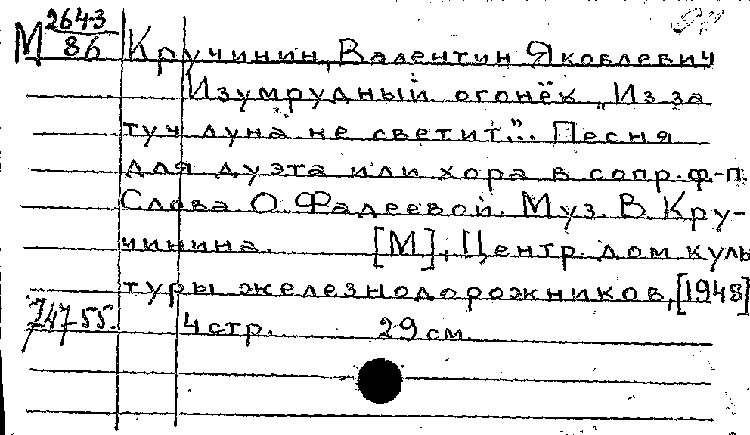 М 2643/86 Кручинин, Валентин Яковлевич
Изумрудный огонёк „Из за
туч луна не светит.". Песня
для дуэта или хора в сопр. ф.-п.
Слова О. Фадеевой. Муз. В. Кру-
чинина. [М], Центр. дом куль
туры железнодорожников, [1948]
74755. 4 стр. 29 см.